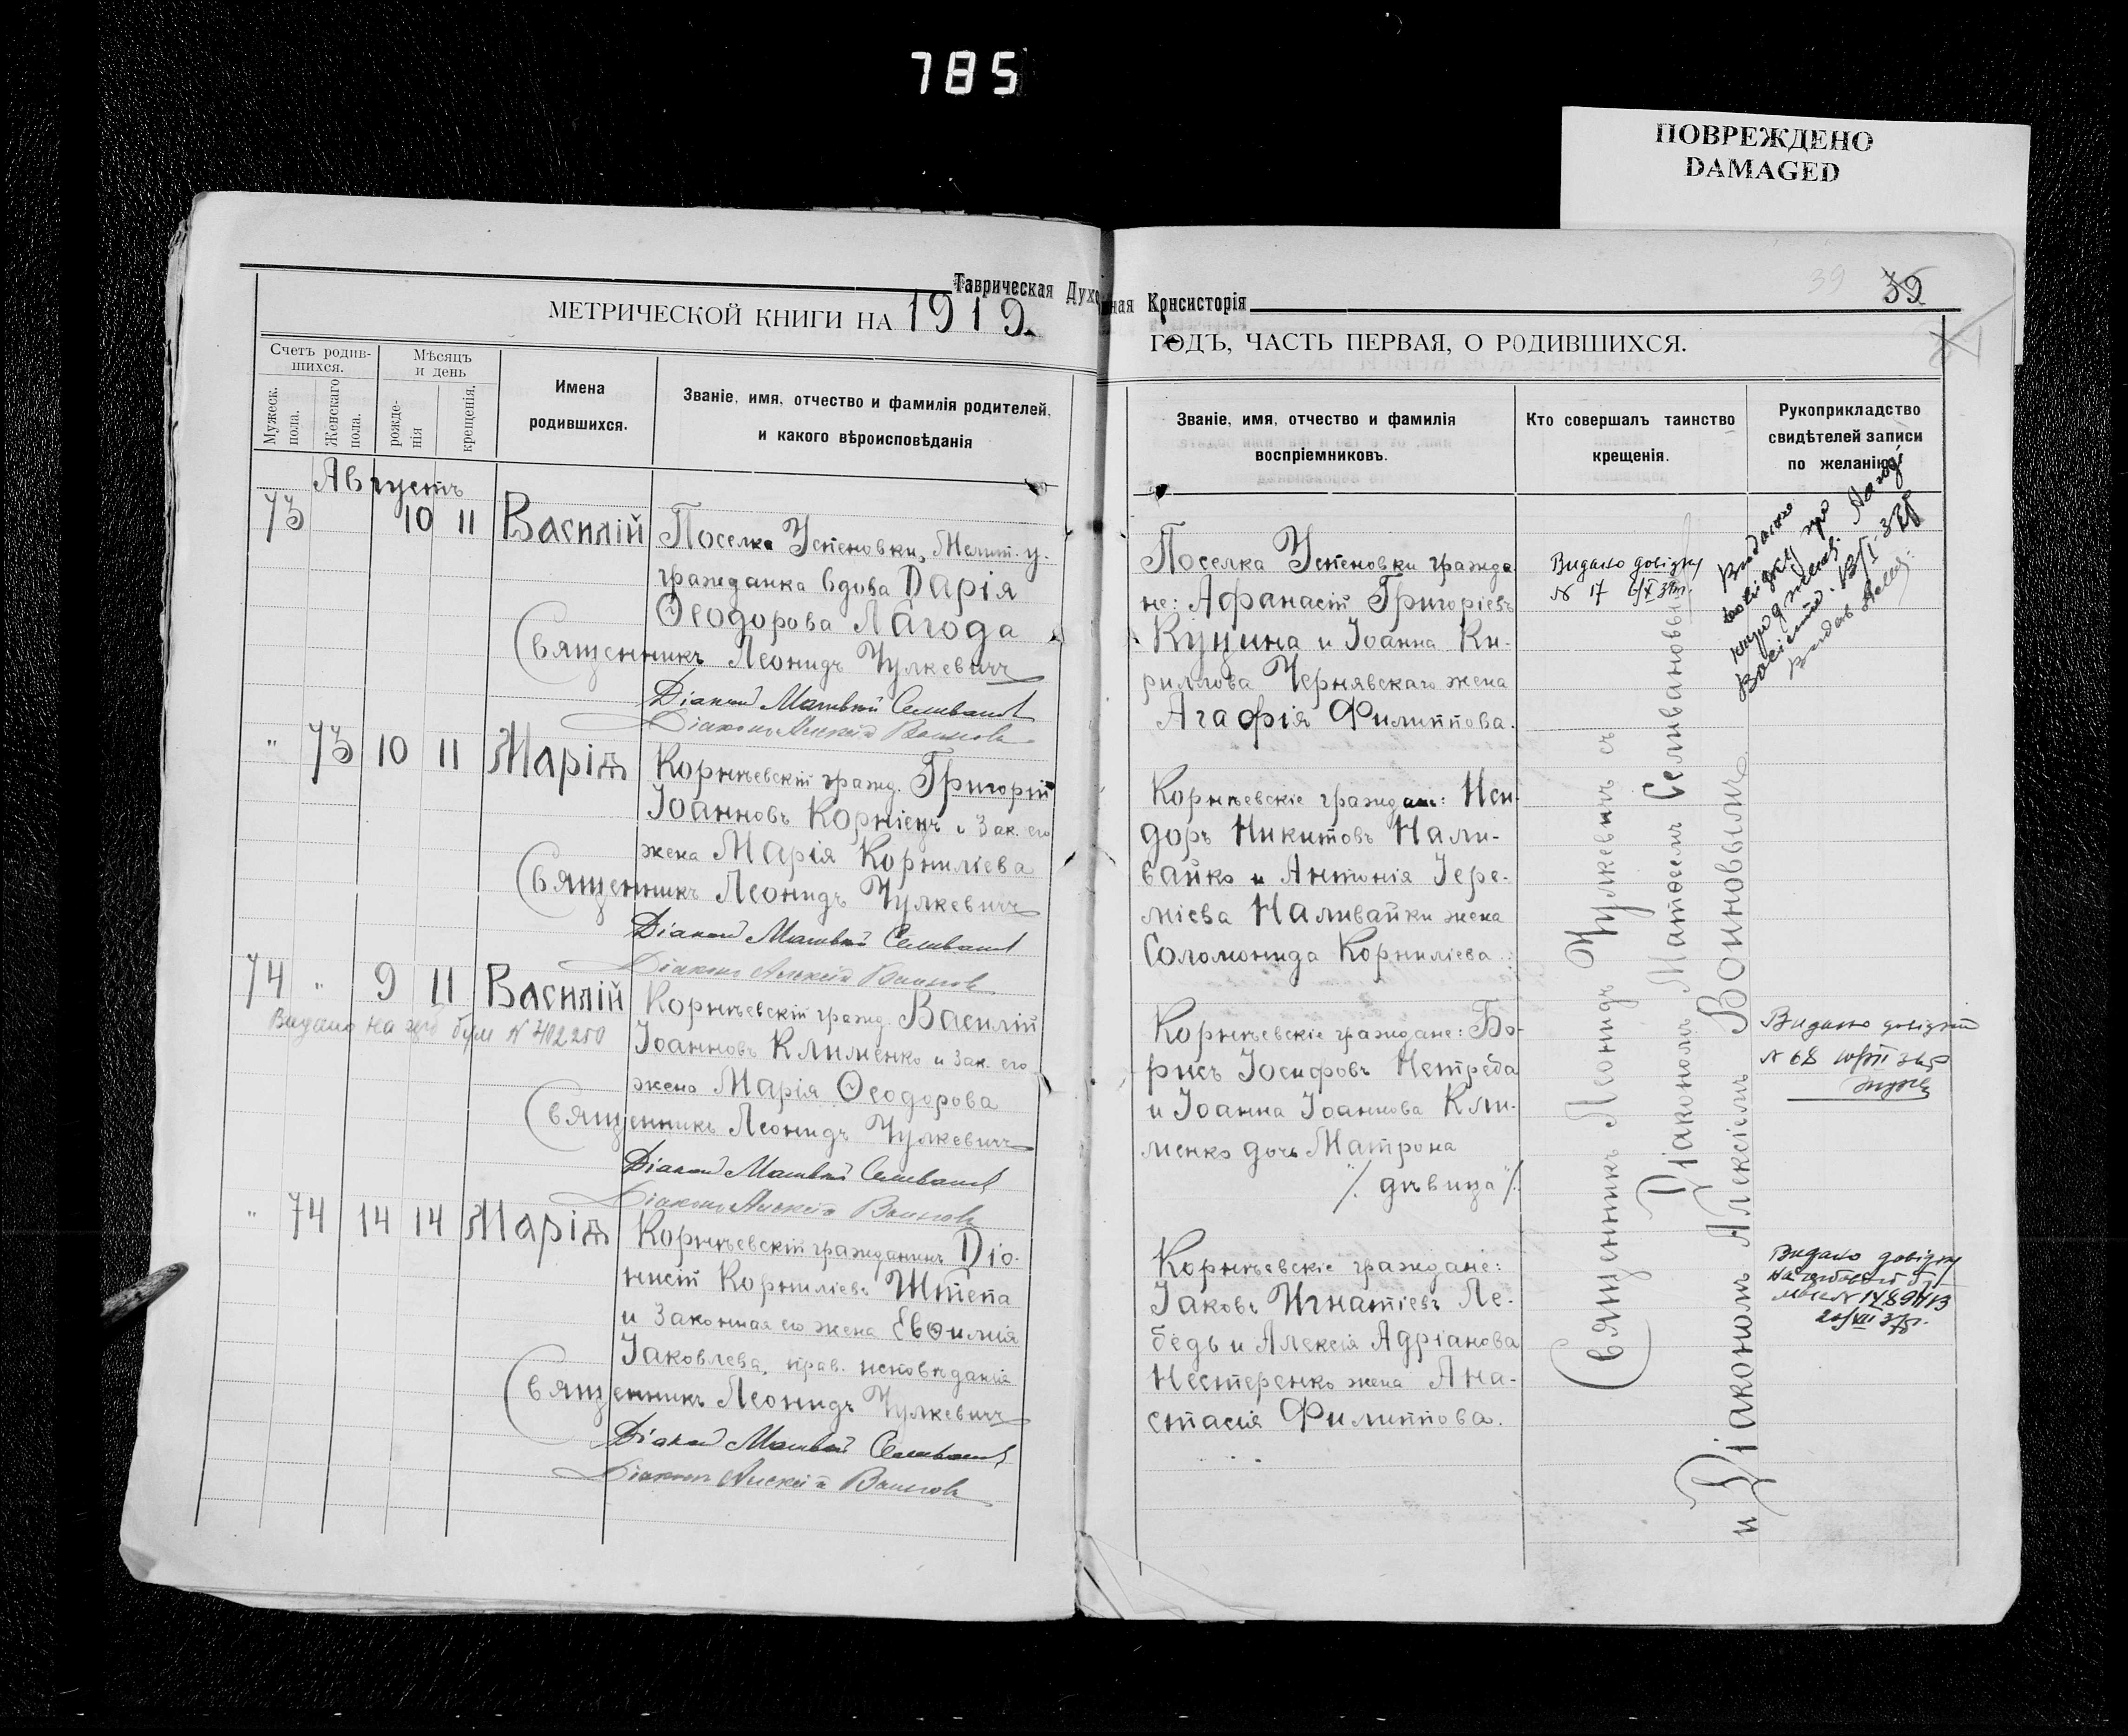 785
ПОВРЕЖДЕНО
DAMAGED
Таврическая Духовная Консисторія
39
39
МЕТРИЧЕСКОЙ КНИГИ НА 1919
ГОДЪ, ЧАСТЬ ПЕРВАЯ, О РОДИВШИХСЯ.
Счетъ родив-
шихся.
Мѣсяцъ
и день
Мужеск.
пола.
Женскаго
пола.
рожде-
нія
крещенія.
Имена
родившихся.
Званіе, имя, отчество и фамилія родителей,
и какого вѣроисповѣданія
Званіе, имя, отчество и фамилія
воспріемниковъ.
Кто совершалъ таинство
крещенія.
Рукоприкладство
свидѣтелей записи
по желанію
Августъ
73 10 11 Василій
Поселка Успеновки, Мелит. у.
гражданка вдова Дарія
Ѳеодорова Лагода
Священникъ Леонидъ Чулкевичъ
Діаконъ Матвей Селиванов
Діаконъ Алексій Воинов
Поселка Успеновки гражда
не: Афанасій Григоріевъ
Куцина и Іоанна Ки-
риллова Чернявскаго жена
Агафія Филиппова.
Видано довідку
№ 17
Видано
довідку про
народжен.
" 73 10 11 Марія
Корнѣевскій гражд. Григорій
Іоанновъ Корніецъ и зак. его
жена Марія Корниліева
Священникъ Леонидъ Чулкевичъ
Діаконъ Матвей Селиванов
Діаконъ Алексій Воинов
Корнѣевскіе граждане: Иси-
доръ Никитовъ Нали-
вайко и Антонія Іере-
міева Наливайки жена
Соломонида Корниліева.
74 " 9 11 Василій
Видано на герб бум № 402250
Корнѣевскій гражд. Василій
Іоанновъ Клименко и зак. его
жена Марія Ѳеодорова
Священникъ Леонидъ Чулкевичъ
Діаконъ Матвей Селиванов
Діаконъ Алексій Воинов
Корнѣевскіе граждане: Бо-
рисъ Іосифовъ Нетреба
и Іоанна Іоаннова Кли-
менко дочь Матрона
/. дѣвица /.
Видано довідку
№ 68
" 74 14 14 Марія
Корнѣевскій гражданинъ Діо-
нисій Корниліевъ Штепа
и законная его жена Евѳимія
Іаковлева, прав. исповѣданія
Священникъ Леонидъ Чулкевичъ
Діаконъ Матвей Селиванов
Діаконъ Алексій Воинов
Корнѣевскіе граждане:
Іаковъ Игнатіевъ Ле-
бедь и Алексія Адріанова
Нестеренко жена Ана-
стасія Филиппова.
Видано довідку
Священникъ Леонидъ Чулкевичъ съ
Діакономъ Матѳеемъ Селивановым
и Діакономъ Алексіемъ Воиновымъ